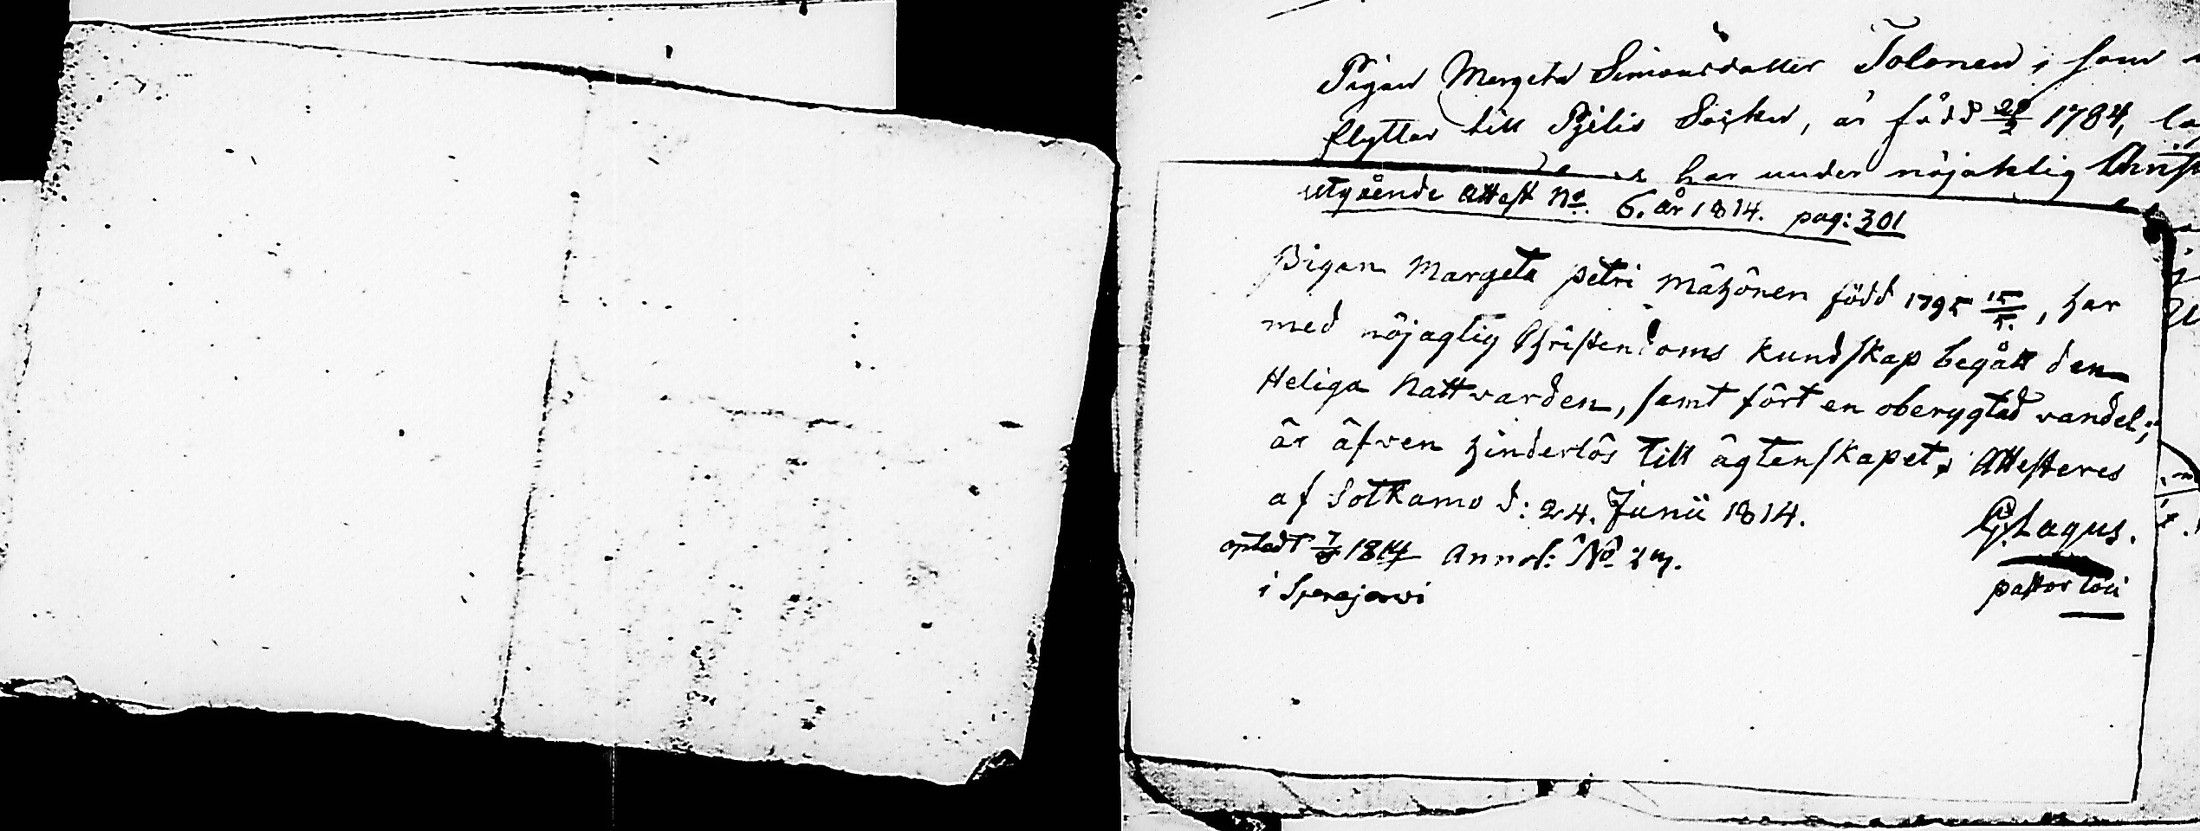 Pigan Margeta Simonsdotter Tolonen, som
flyttar till Pjelis Socken, är född 20/2 1784,
har under nöjaktelig Christ
Utgående Attest No. 6. år 1814. pag: 301
Pigan Margeta Petri Mähönen född 1795 15/5., har
med nöjagtig Christendoms Kundskap begått den
Heliga Nattvarden, samt fört en oberygtad vandel;
är äfven hinderlös till ägtenskapet, Attesteres
af Sotkamo d: 24. Junii 1814.
G. Lagus.
pastor loci
1814 Annot: No 27.
i